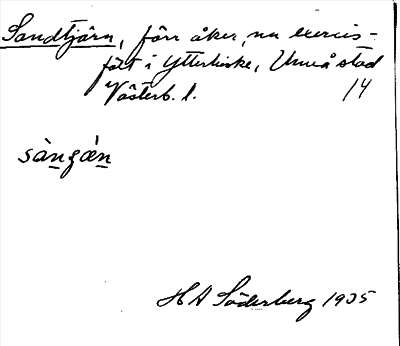 Sandtjärn, förr åker, nu exercis-
fält i Ytterhiske, Umeå stad
Västerb. l. 14
sàngǽn
H A Söderberg 1935